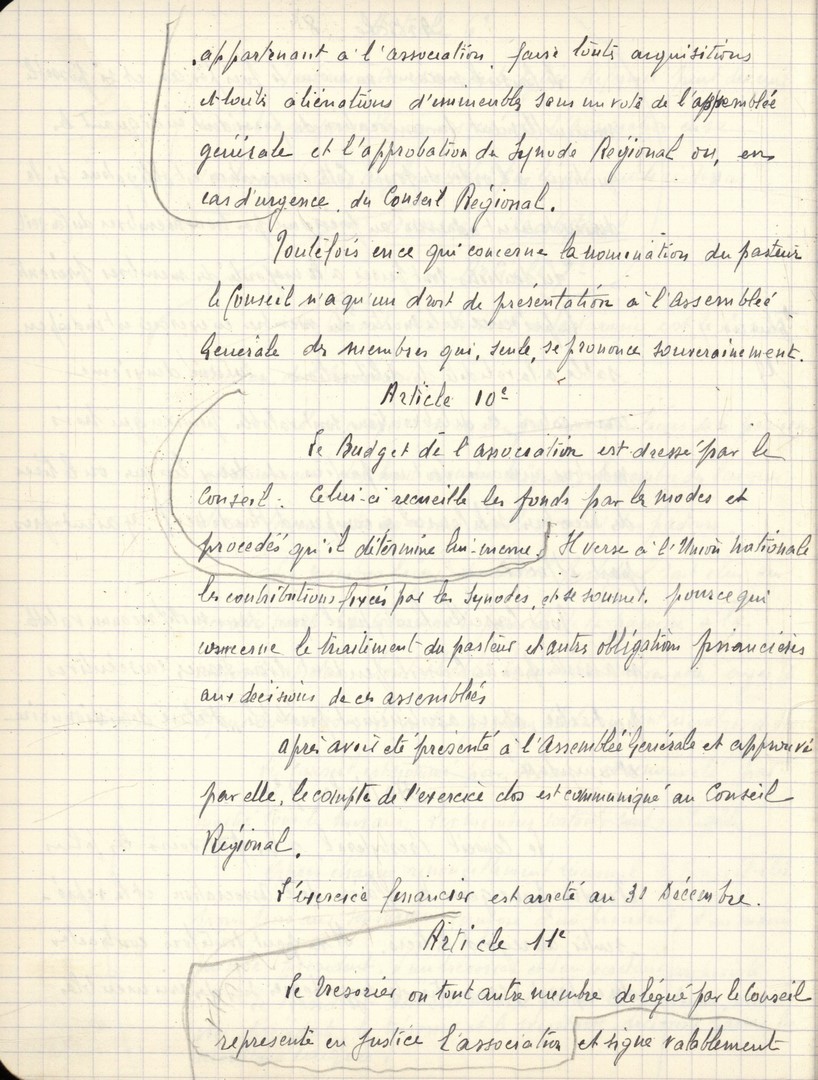 appartenant à l'association, faire toutes acquisitions
et toutes aliénations d'immeubles sans un vote de l'assemblée
générale et l'approbation du Synode Régional ou, en
cas d'urgence, du Conseil Régional.
Toutefois en ce qui concerne la nomination du pasteur
le Conseil n'a qu'un droit de présentation à l'Assemblée
Générale des membres qui, seule, se prononce souverainement.
Article 10e
Le Budget de l'association est dressé par le
Conseil. Celui-ci recueille les fonds par les modes et
procédés qu'il détermine lui-même. Il verse à l'Union Nationale
les contributions fixées par les Synodes, et se soumet, pour ce qui
concerne le traitement du pasteur et autres obligations financières
aux décisions de ces assemblées
après avoir été présenté à l'Assemblée Générale et approuvé
par elle, le compte de l'exercice clos est communiqué au Conseil
Régional.
L'exercice financier est arrêté au 31 Décembre.
Article 11e
Le Trésorier ou tout autre membre délégué par le Conseil
représente en Justice l'association et signe valablement